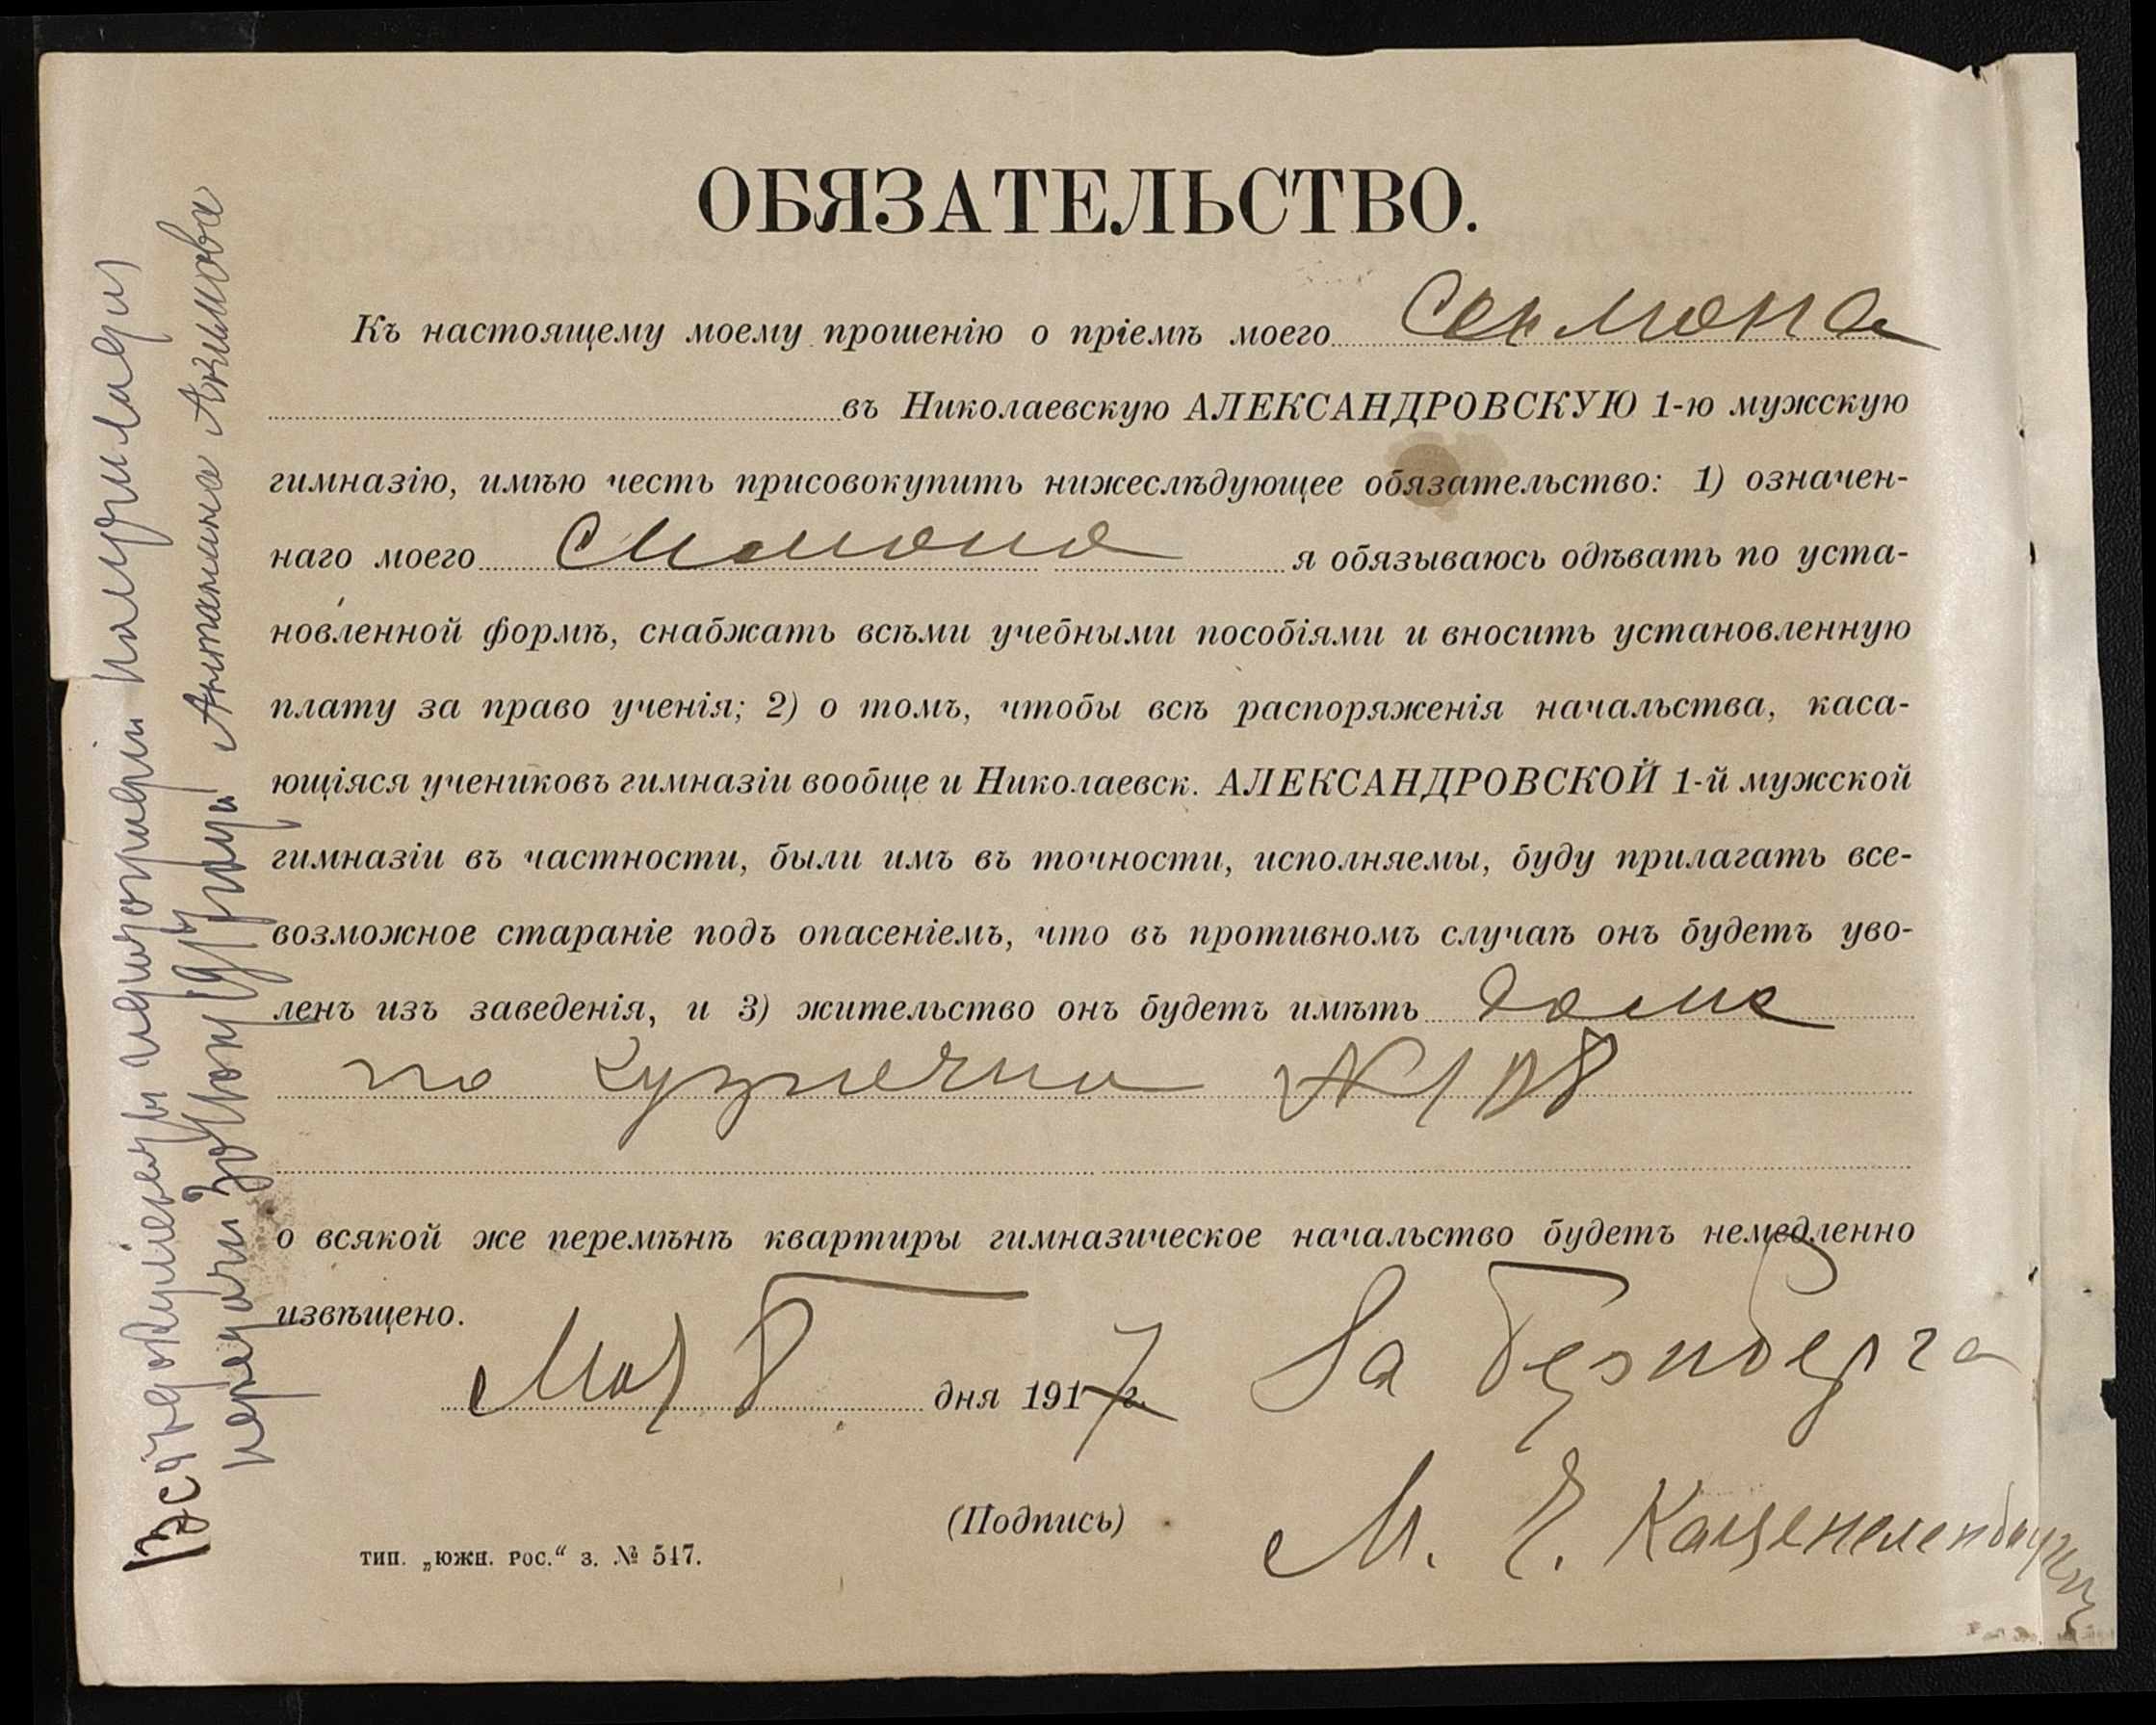 ОБЯЗАТЕЛЬСТВО.
Къ настоящему моему прошенію о пріемѣ моего Семмона
въ Николаевскую АЛЕКСАНДРОВСКУЮ 1-ю мужскую
гимназію, имѣю честь присовокупить нижеслѣдующее обязательство: 1) означен-
наго моего Симона я обязываюсь одѣвать по уста-
новленной формѣ, снабжать всѣми учебными пособіями и вносить установленную
плату за право ученія; 2) о томъ, чтобы всѣ распоряженія начальства, каса-
ющіяся учениковъ гимназіи вообще и Николаевск. АЛЕКСАНДРОВСКОЙ 1-й мужской
гимназіи въ частности, были имъ въ точности, исполняемы, буду прилагать все-
возможное стараніе подъ опасеніемъ, что въ противномъ случаѣ онъ будетъ уво-
ленъ изъ заведенія, и 3) жительство онъ будетъ имѣть доме
по Кузнечни №
о всякой же перемѣнѣ квартиры гимназическое начальство будетъ немедленно
извѣщено.
Мая 8 дня 1917 г. За Гезнберга
(Подпись) М. Е. Каценеленбоген
тип. „южн. рос.“ з. № 547.
Всѣ документы и фотографіи получила
Антонина Акимова